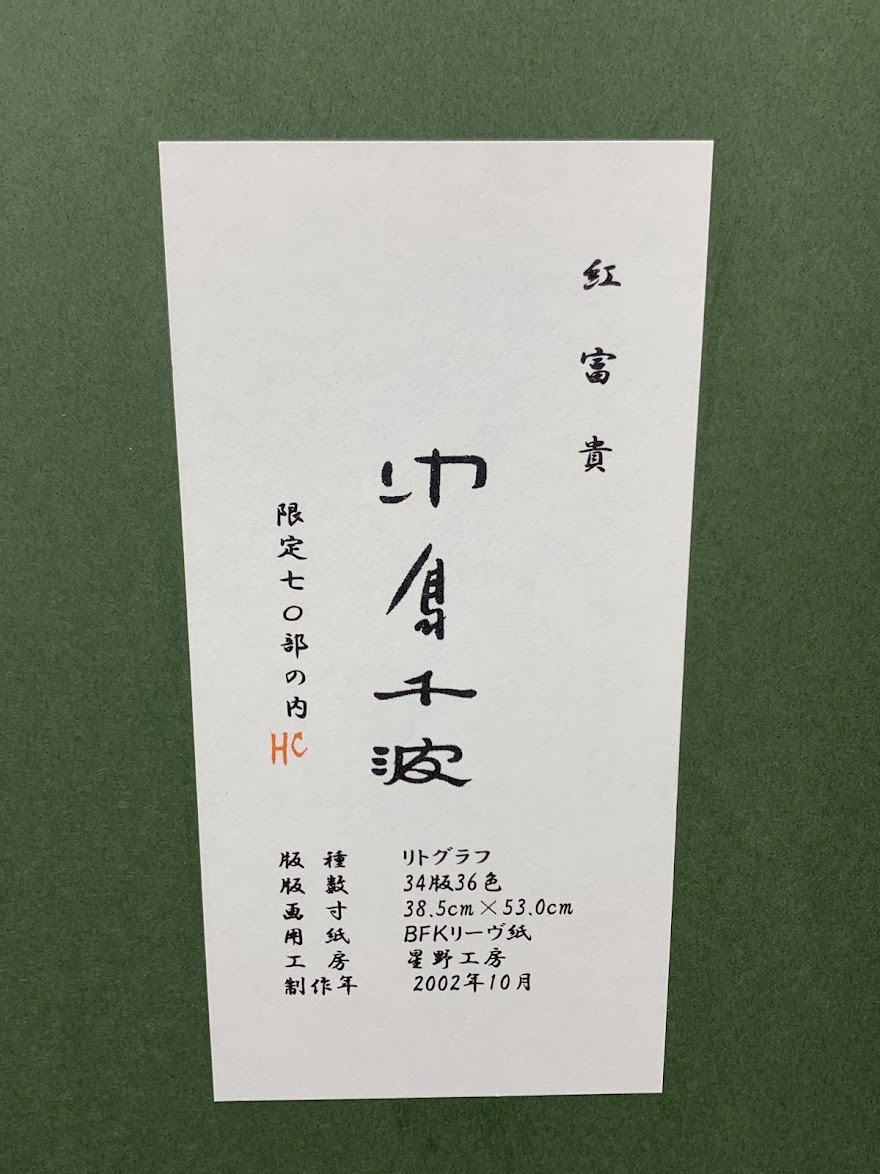 紅富貴
中島千波
限定七〇部の内
HC
版種 リトグラフ
版数 34版36色
画寸 38.5cm×53.0cm
用紙 BFKリーヴ紙
工房 星野工房
制作年 2002年10月